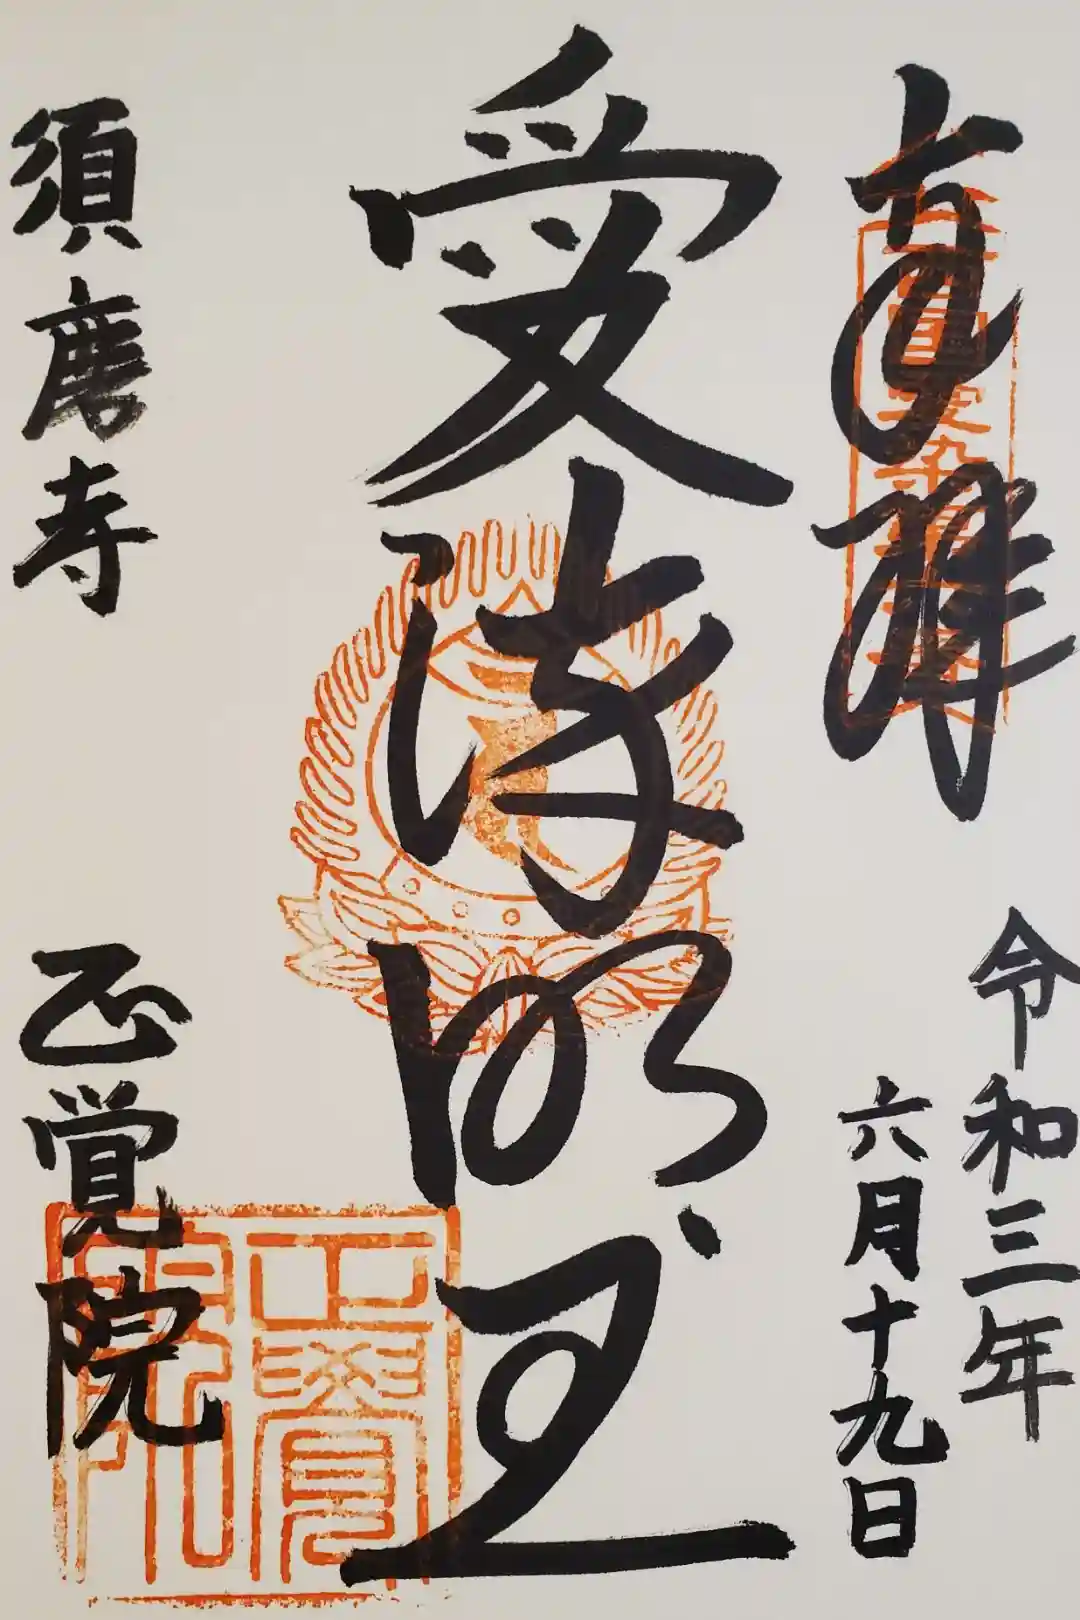 奉拝
令和三年
六月十九日
愛染明王
須磨寺
正覚院
正覚院